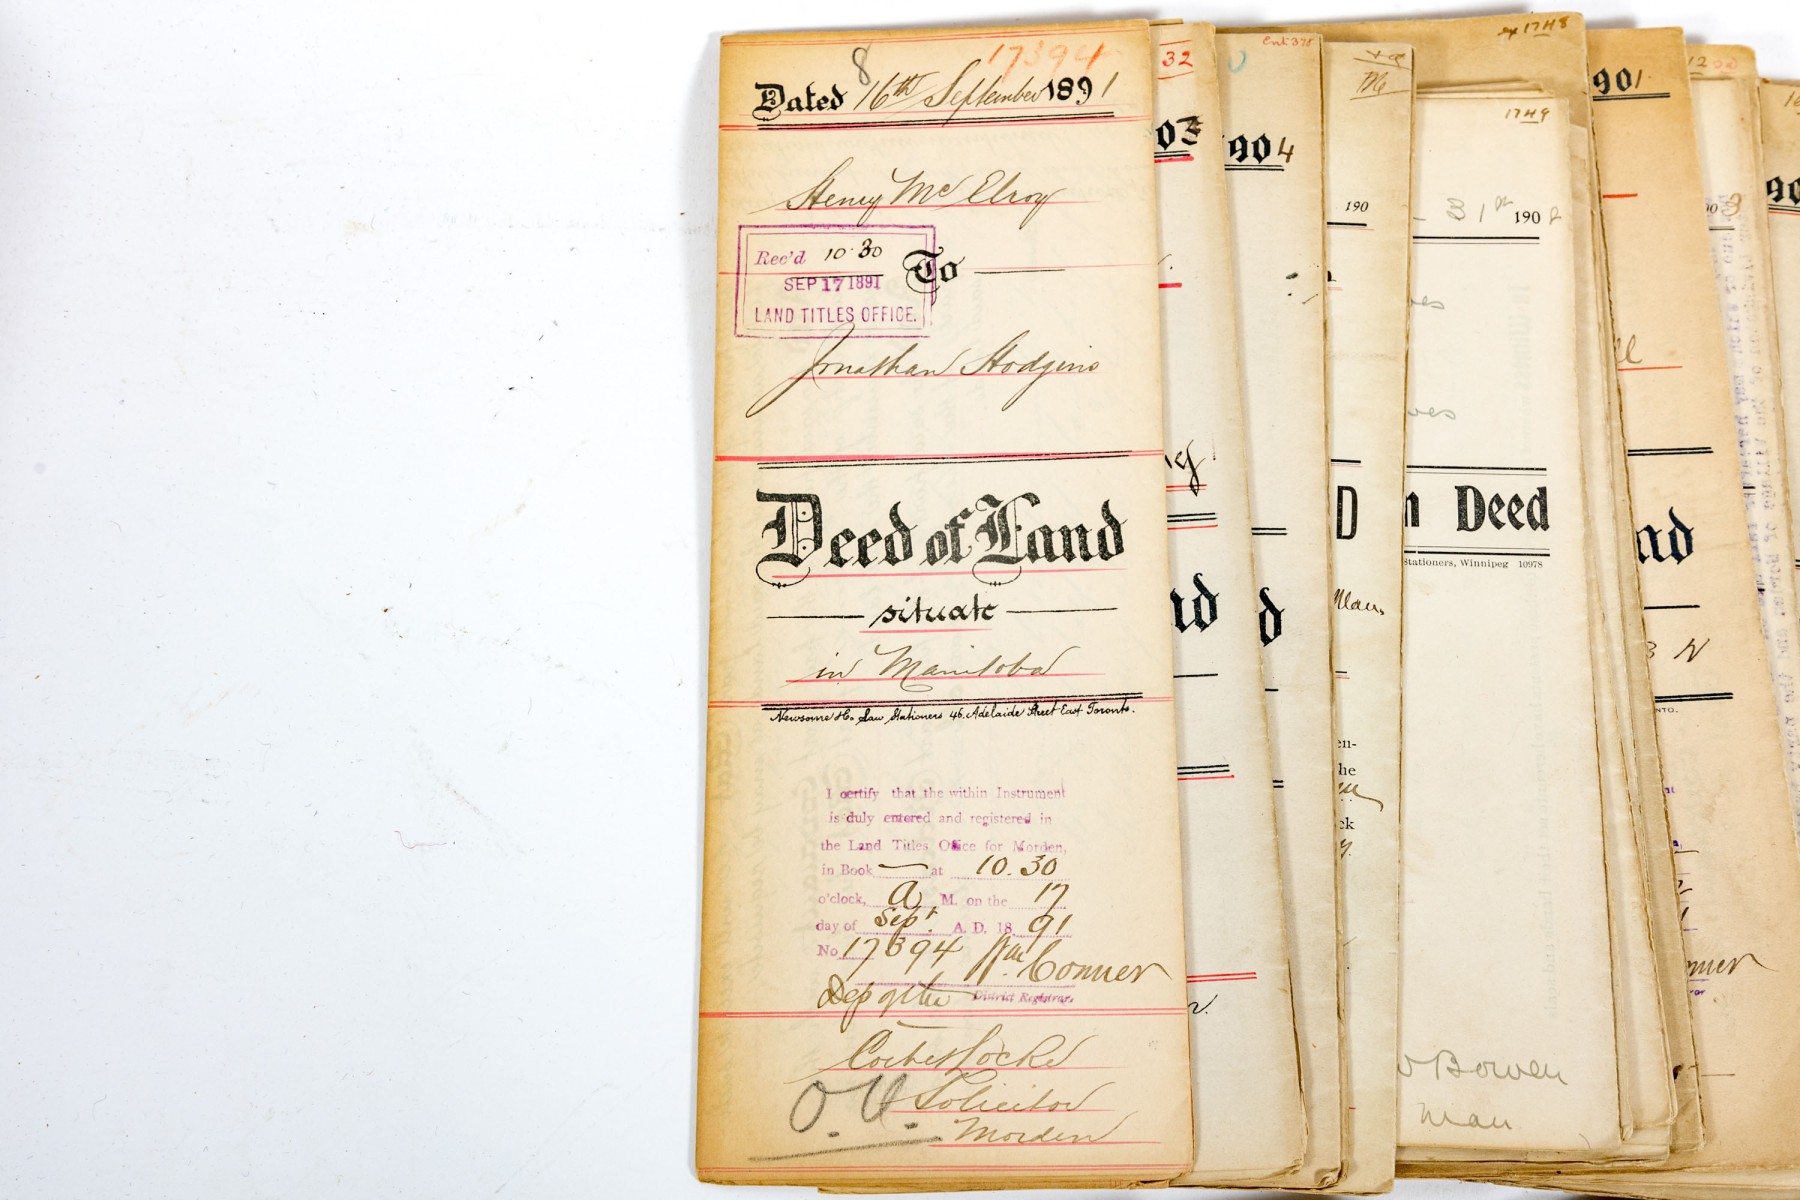 8
17394
Dated 16th September 1891
Henry McElroy
Rec'd 10.30
SEP 17 1891
LAND TITLES OFFICE.
To
Jonathan Hodgins
Deed of Land
situate
in Manitoba
Newsome & Co. Law Stationers 46. Adelaide Street East Toronto.
I certify that the within Instrument
is duly entered and registered in
the Land Titles Office for Morden,
in Book — at 10.30
o'clock, A M. on the 17
day of Sept. A. D. 18 91
No 17394 Wm Conner
Dep District Registrar.
Locke
Solicitor
Morden
32
03
nd
Ent 378
904
d
190
D
Man.
en-
he
ck
1748
1749
1st 1902
n Deed
Stationers, Winnipeg 10978
Bowen
Man
901
nd
NTO.
12
90